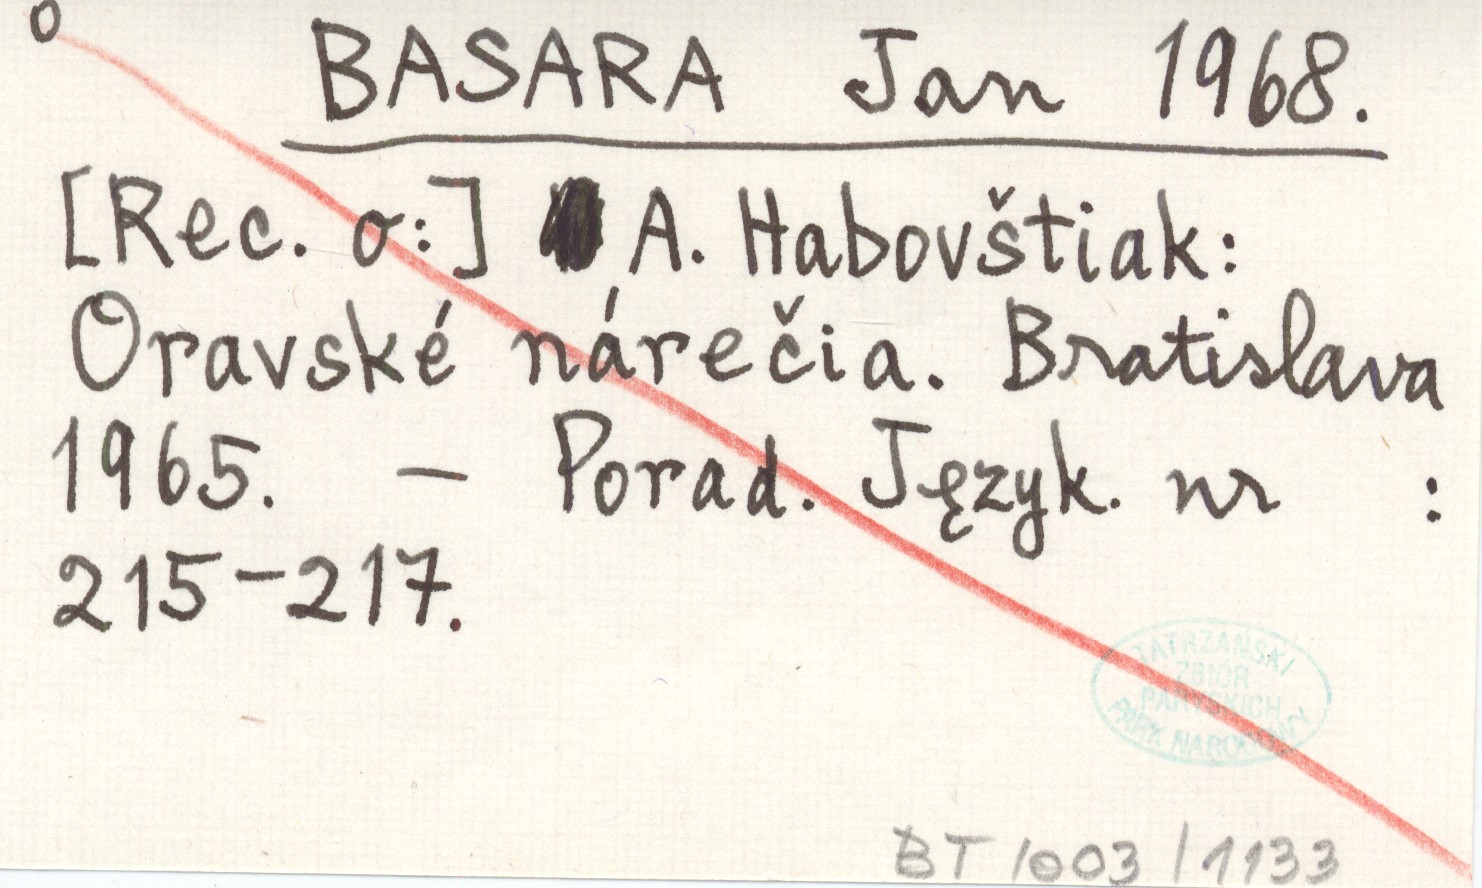 o
BASARA Jan 1968.
[Rec. o:] A. Habovštiak:
Oravské nárečia. Bratislava
1965. — Porad. Język. nr :
215-217.
TATRZAŃSKI
ZBIÓR
PARYSKICH
PARK NARODOWY
BT 1003/1133